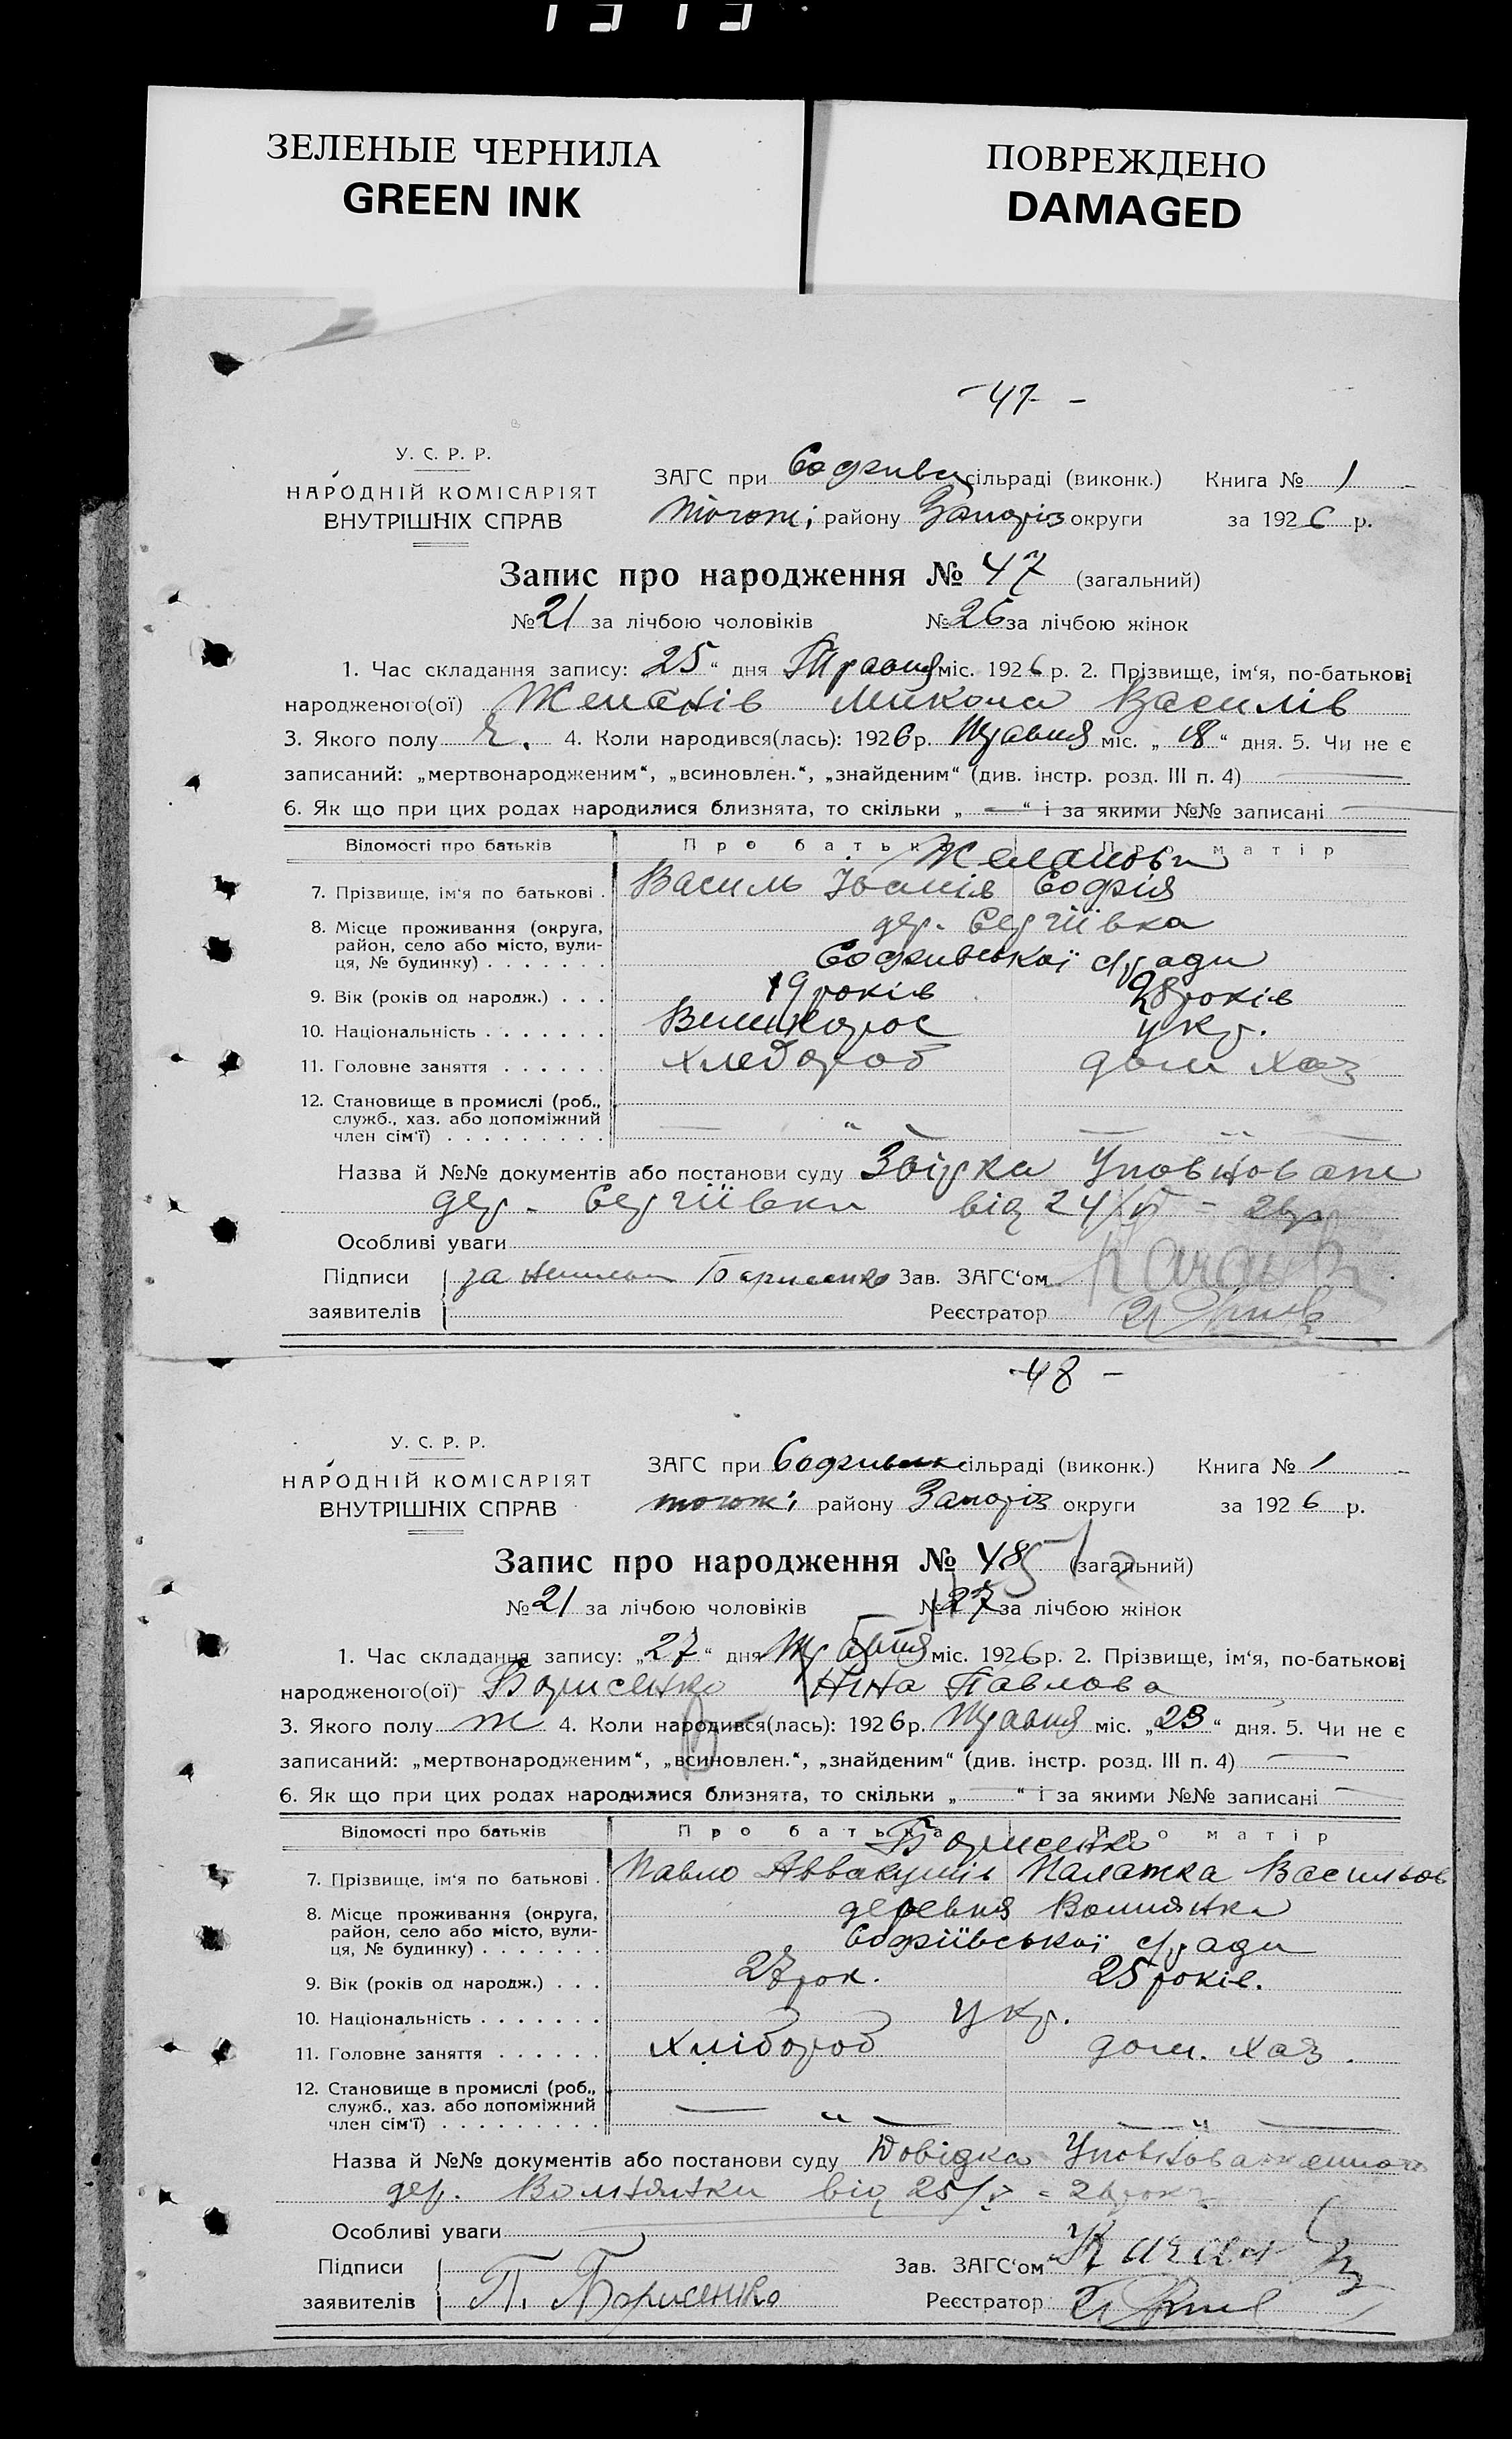 ЗЕЛЕНЫЕ ЧЕРНИЛА
GREEN INK
ПОВРЕЖДЕНО
DAMAGED
- 47 -
У. С. Р. Р.
НАРОДНІЙ КОМІСАРІЯТ
ВНУТРІШНІХ СПРАВ
ЗАГС при Софиівс сільраді (виконк.) Книга № 1
тогож; району Запоріз округи за 1926 р.
Запис про народження № 47 (загальний)
№ 21 за лічбою чоловіків № 26 за лічбою жінок
1. Час складання запису: 25 “ дня Травня міс. 1926 р. 2. Прізвище, ім‘я, по-батькові
народженого(ої) Желанів Микола Василів
3. Якого полу Ч. 4. Коли народився(лась): 1926 р. Травня міс. „ 18 “ дня. 5. Чи не є
записаний: „мертвонародженим“, „всиновлен.“, „знайденим“ (див. інстр. розд. III п. 4)
6. Як що при цих родах народилися близнята, то скільки „ — “ і за якими №№ записані —
Відомості про батьків Про батька Про матір
Желанови
7. Прізвище, ім‘я по батькові . Василь Іванів Софія
8. Місце проживання (округа, район, село або місто, вулиця, № будинку) . . . . . . . дер. Сергіївка
Софиівської с/ради
9. Вік (років од народж.) . . . 19 років 28 років
10. Національність . . . . . . . Великорос укр.
11. Головне заняття . . . . . . хлебороб дом хаз
12. Становище в промислі (роб., служб., хаз. або допоміжний член сім‘ї) . . . . . . . . . — „ — — „ —
Назва й №№ документів або постанови суду Уповноваж
дер. Сергіївки від 24/V - 26р
Особливі уваги
Підписи за Борисенко Зав. ЗАГС‘ом
заявителів Реєстратор
- 48 -
У. С. Р. Р.
НАРОДНІЙ КОМІСАРІЯТ
ВНУТРІШНІХ СПРАВ
ЗАГС при Софиівськ сільраді (виконк.) Книга № 1
тогож; району Запоріз округи за 1926 р.
Запис про народження № 48 (загальний)
№ 21 за лічбою чоловіків № 27 за лічбою жінок
1. Час складання запису: „ 27 “ дня Травня міс. 1926 р. 2. Прізвище, ім‘я, по-батькові
народженого(ої) Борисенко Ніна Павлова
3. Якого полу Ж 4. Коли народився(лась): 1926 р. Травня міс. „ 23 “ дня. 5. Чи не є
записаний: „мертвонародженим“, „всиновлен.“, „знайденим“ (див. інстр. розд. III п. 4) —
6. Як що при цих родах народилися близнята, то скільки „ — “ і за якими №№ записані —
Відомості про батьків Про батька Про матір
Борисенко
7. Прізвище, ім‘я по батькові . Павло Аввакумів Палажка Васильов
8. Місце проживання (округа, район, село або місто, вулиця, № будинку) . . . . . . . деревня Волнянка
Софіївської с/ради
9. Вік (років од народж.) . . . 27 рок. 25 років.
10. Національність . . . . . . . укр.
11. Головне заняття . . . . . . хлібороб дом. хаз.
12. Становище в промислі (роб., служб., хаз. або допоміжний член сім‘ї) . . . . . . . . . — „ — — „ —
Назва й №№ документів або постанови суду Довідка Уповноваженного
дер. Волнянки від 25/V - 26 року
Особливі уваги
Підписи Зав. ЗАГС‘ом
заявителів П. Борисенко Реєстратор